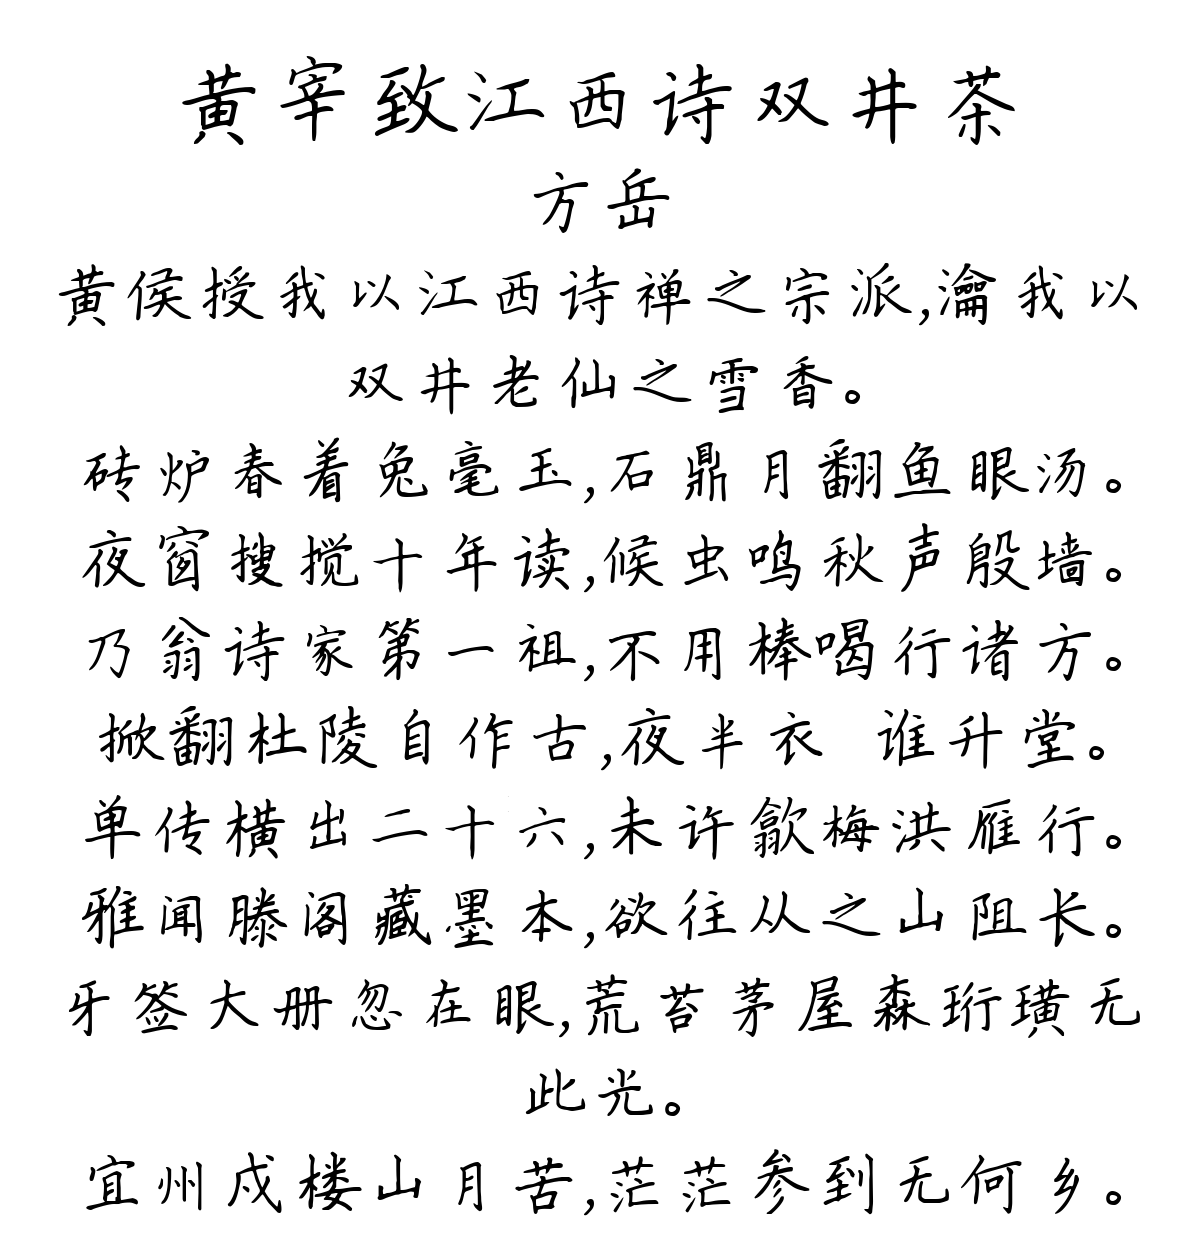 黄宰致江西诗双井茶
方岳
黄侯授我以江西诗禅之宗派,瀹我以
双井老仙之雪香。
砖炉春着兔毫玉,石鼎月翻鱼眼汤。
夜窗搜搅十年读,候虫鸣秋声殷墙。
乃翁诗家第一祖,不用棒喝行诸方。
掀翻杜陵自作古,夜半衣 谁升堂。
单传横出二十六,未许歙梅洪雁行。
雅闻滕阁藏墨本,欲往从之山阻长。
牙签大册忽在眼,荒苔茅屋森珩璜无
此光。
宜州戍楼山月苦,茫茫参到无何乡。